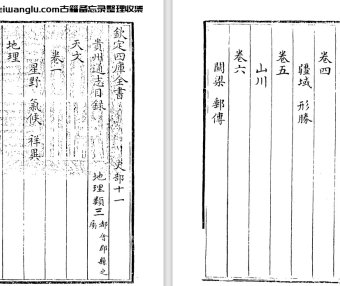 eiwanglu.com古籍备忘录整理收集
欽定四庫全書 史部十一
貴州通志目録 地理類三 都會郡縣之屬
天文
卷一
星野 氣候 祥異
地理
卷四
疆域 形勝
卷五
山川
卷六
關梁 郵傳